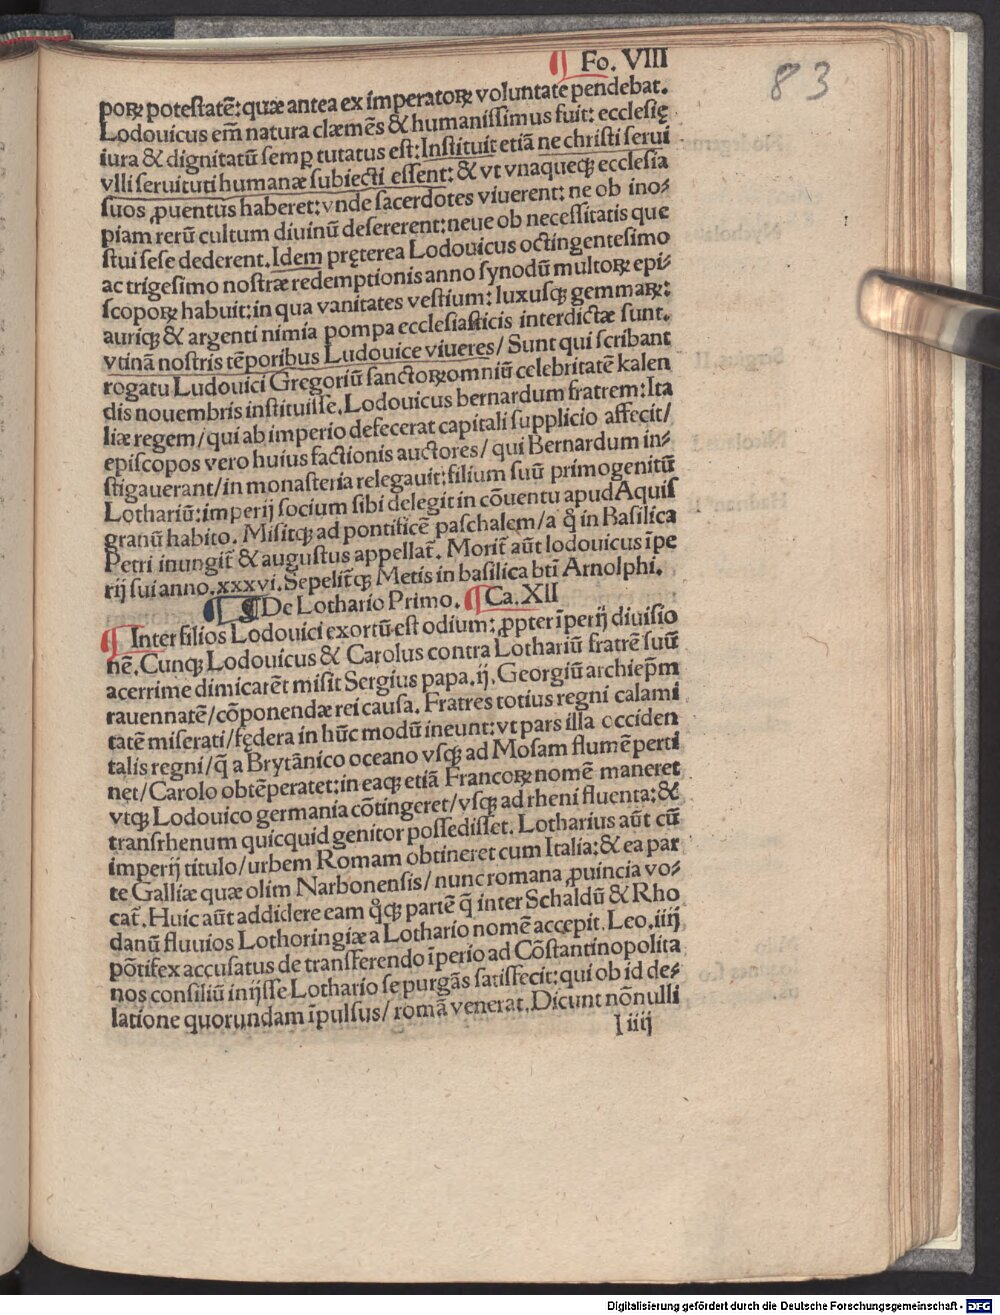 ¶ Fo. VIII
83
poꝝ potestatē: quæ antea ex imperatoꝝ voluntate pendebat.
Lodouicus em̄ natura clæmēs & humanissimus fuit: ecclesię
iura & dignitatū semp tutatus est: Instituit etiā ne christi serui
vlli seruituti humanæ subiecti essent: & vt vnaqueqꝫ ecclesia
suos ꝓuentus haberet: vnde sacerdotes viuerent: ne ob ino⸗
piam rerū cultum diuinū desererent: neue ob necessitatis que
stui sese dederent. Idem pręterea Lodouicus octingentesimo
ac trigesimo nostræ redemptionis anno synodū multoꝝ epi⸗
scopoꝝ habuit: in qua vanitates vestium: luxusqꝫ gemmaꝝ:
auriqꝫ & argenti nimia pompa ecclesiasticis interdictæ sunt.
vtinā nostris tēporibus Ludouice viueres/ Sunt qui scribant
rogatu Ludouici Gregoriū sanctoꝝ omniū celebritatē kalen
dis nouembris instituisse. Lodouicus bernardum fratrem: Ita
liæ regem/ qui ab imperio defecerat capitali supplicio affecit/
episcopos vero huius factionis auctores/ qui Bernardum in⸗
stigauerant/ in monasteria relegauit: filium suū primogenitū
Lothariū: imperij socium sibi delegit in cōuentu apud Aquis
granū habito. Misitqꝫ ad pontificē paschalem/ a q̊ in Basilica
Petri inungit̄ & augustus appellat̄. Morit̄ aūt lodouicus īpe
rij sui anno. xxxvi. Sepelit̄qꝫ Metis in basilica bti Arnolphi.
¶ ¶ De Lothario Primo. ¶ Ca. XII
¶ Inter filios Lodouici exortū est odium: ꝓpter īperij diuisio
nē. Cunqꝫ Lodouicus & Carolus contra Lothariū fratrē suū
acerrime dimicarēt misit Sergius papa. ij. Georgiū archiep̄m
rauennatē/ cōponendæ rei causa. Fratres totius regni calami
tatē miserati/ fędera in hūc modū ineunt: vt pars illa occiden
talis regni/ q̄ a Brytānico oceano vsqꝫ ad Mosam flumē perti
net/ Carolo obtēperatet: in eaqꝫ etiā Francoꝝ nomē maneret
vtqꝫ Lodouico germania cōtingeret/ vsqꝫ ad rheni fluenta: &
transrhenum quicquid genitor possedisset. Lotharius aūt cū
imperij titulo/ urbem Romam obtineret cum Italia: & ea par
te Galliæ quæ olim Narbonensis/ nunc romana ꝓuincia vo⸗
cat̄. Huic aūt addidere eam q̊qꝫ partē q̄ inter Schaldū & Rho
danū fluuios Lothoringiæ a Lothario nomē accepit. Leo. iiij
pōtifex accusatus de transferendo īperio ad Cōstantinopolita
nos consiliū inijsse Lothario se purgās satisfecit: qui ob id de⸗
latione quorundam īpulsus/ romā venerat. Dicunt nōnulli
l iiij
Digitalisierung gefördert durch die Deutsche Forschungsgemeinschaft - DFG